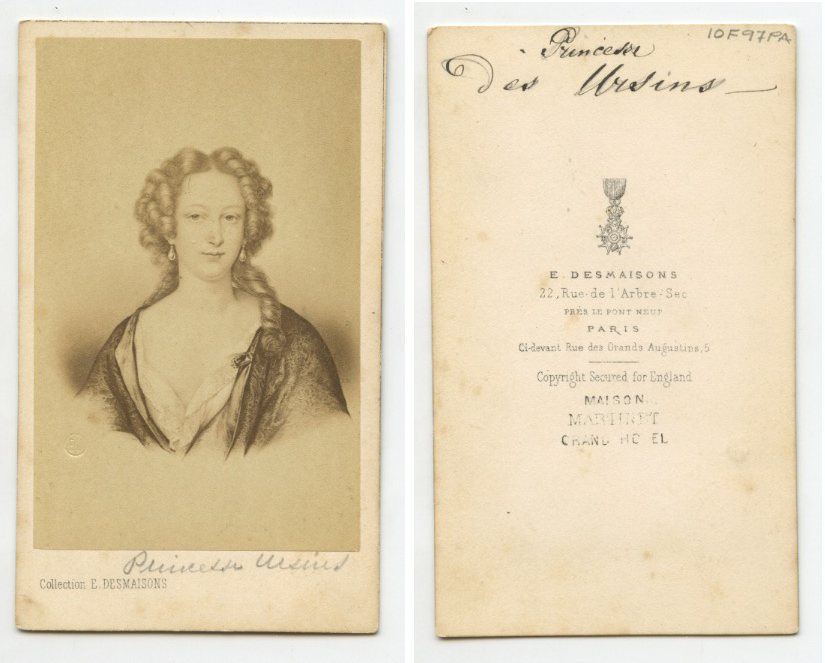 Princesse Ursins
Collection E. DESMAISONS
10F97PA
Princesse
Des Ursins
E. DESMAISONS
22, Rue de l'Arbre-Sec
PRÈS LE PONT NEUF
PARIS
Ci-devant Rue des Grands Augustins, 5
Copyright Secured for England
MAISON
MARTINET
GRAND HOTEL